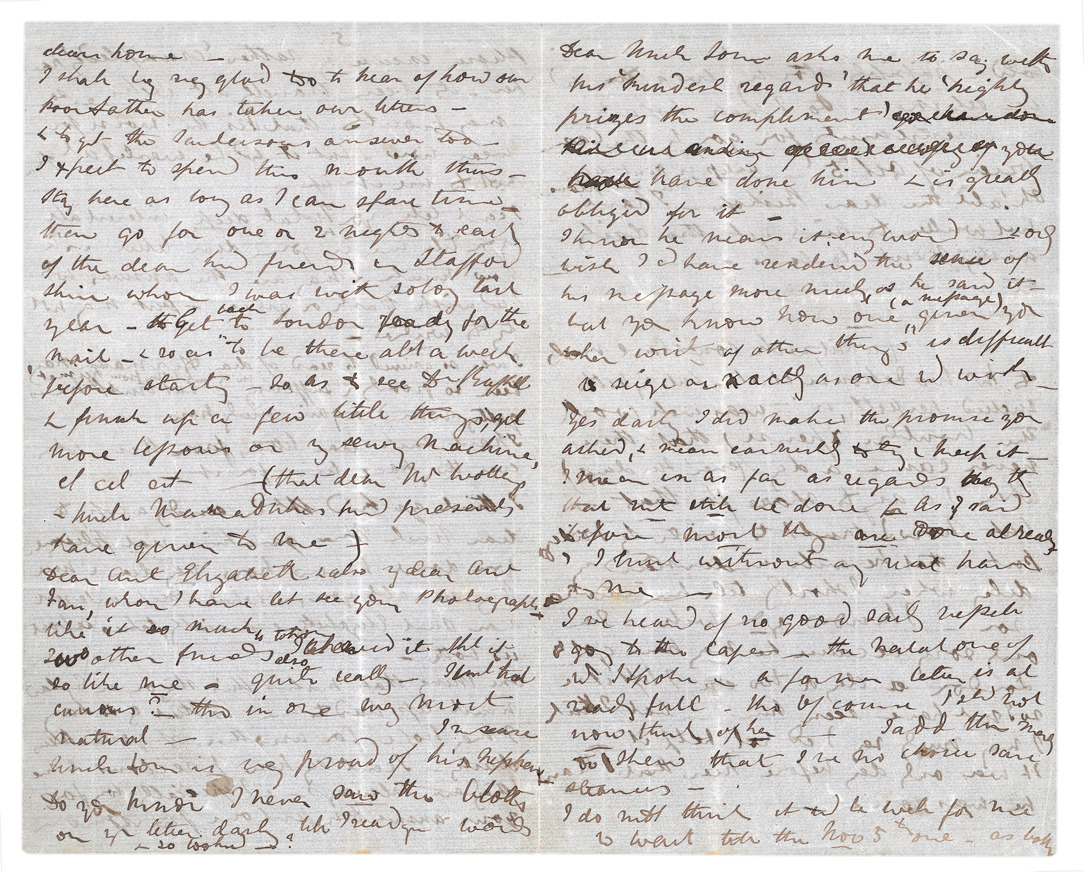 dears home —
I shall be very glad to to hear of how our
poor father has taken our letters —
& to get the Sandersons answer too
I expect to spend this month thus —
stay here as long as I can spare time —
then go for one or 2 nights to each
of the dear kind friends in Stafford
shire whom I was with so long last
year — Get back to London ready for the
mail — & so as to be there abt a week
before starting — so as to see Dr
& finish up a few little things, get
more lessons on my sewing machine,
et cet est — (that dear Mr
& Uncle kind presents
have given to me)
Dear Aunt Elizabeth & also dear Aunt
Fan, whom I have let see your Photograph
like it so much, &
two other friends also I showed it tht it
so like me — quite really —
curious? — this in one way most
natural — In case
Uncle Tom is very proud of his Nephew
Do you know I never saw the blotts
on yr letter darling, till I read yr words
& so looked — ?
Dear Uncle Tom asks me to say with
his kindest regards 'that he 'highly
prizes the compliment' you
have done him & is greatly
obliged for it —
I know he means it, every word — & only
wish I cd have rendered the sense of
his message more much as he said it —
but you know how one (a message) given you
when writing of other things is difficult
to as exactly as one wd wish —
Yes darling I did make the promise you
asked, & mean earnestly to try & keep it —
I mean in as far as regards
that not still be done & As I said
before most they are Done already
I trust without any real harm
to me —
I've heard of no good sailing vessels
going to the Cape — the Natal one of
wh I spoke in a former letter is al
ready full — tho' of course I shd not
now think of her — I add this
to shew that I've no choice, save
steamers —
I do not think it wd be well for me
to wait till the Nov 5th one — as